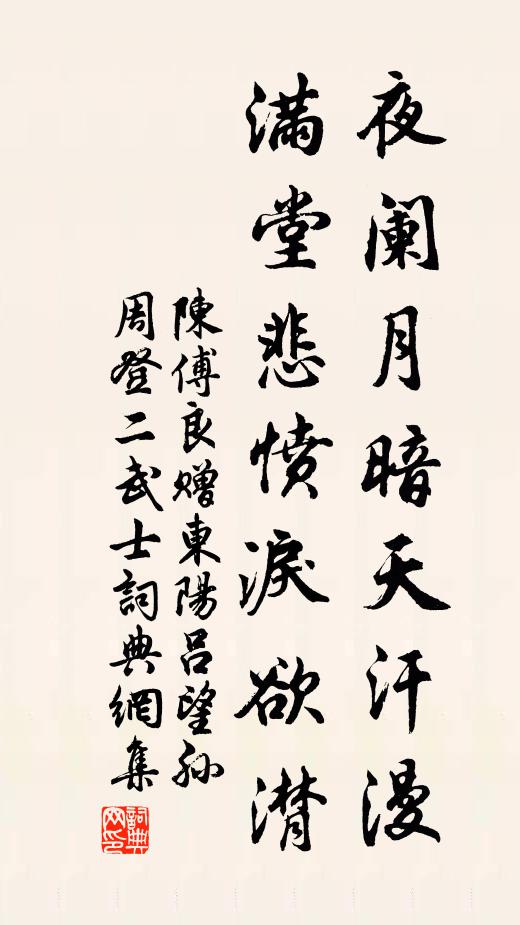 夜阑月暗天汗漫
满堂悲愤淚欲潸
陳傅良赠東陽呂望孙
周登二武士詞典網集
詞典
网印